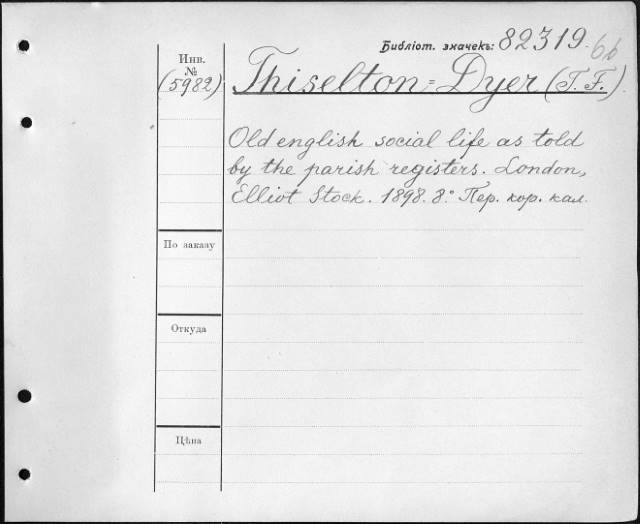 Библіот. значекъ: 82319 бb
Инв.
№
(5982)
Thiselton=Dyer (T. F.).
Old english social life as told
by the parish registers. London,
Elliot Stock. 1898. 8.° Пер. кор. кал.
По заказу
Откуда
Цѣна